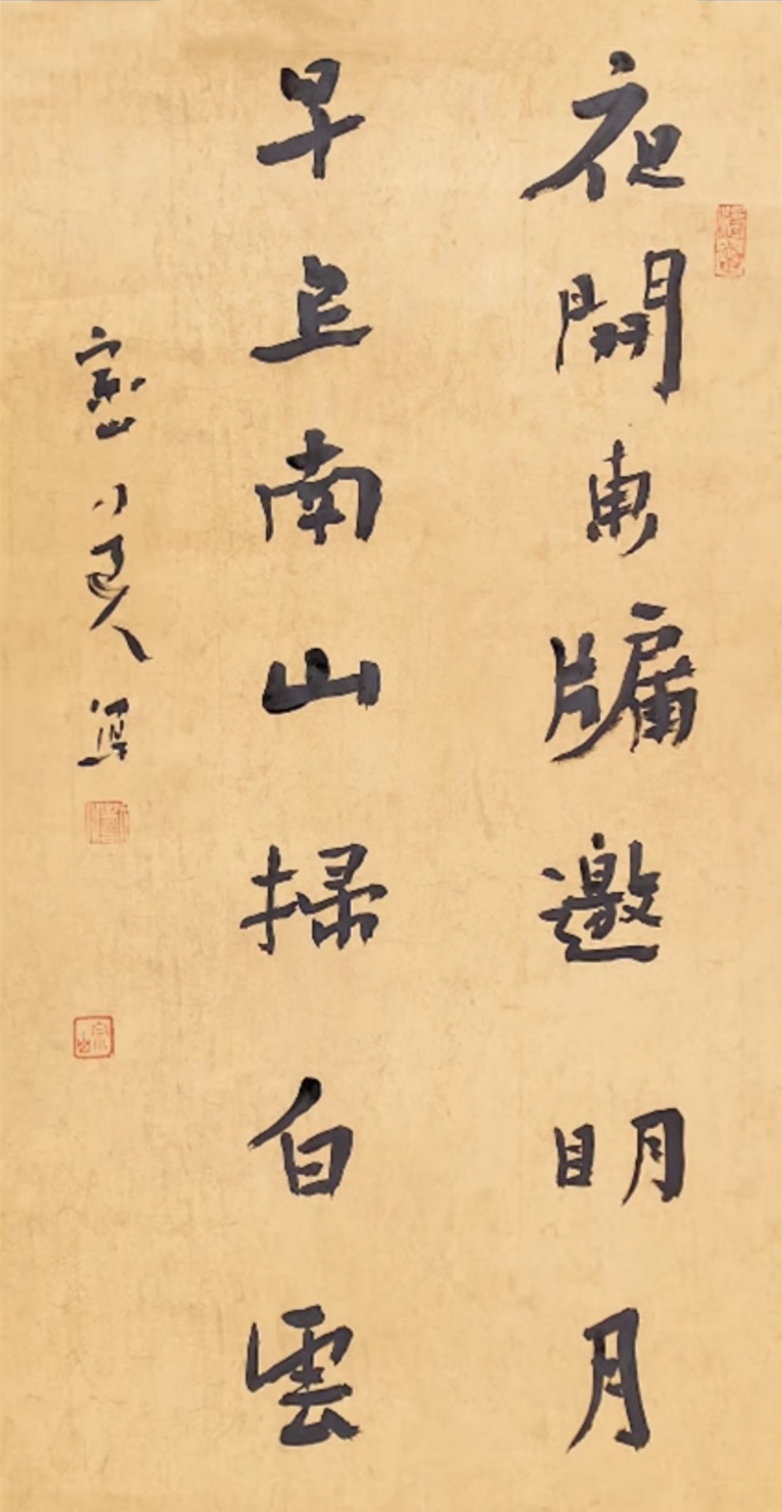 夜開東牖邀明月
早上南山掃白雲
山人